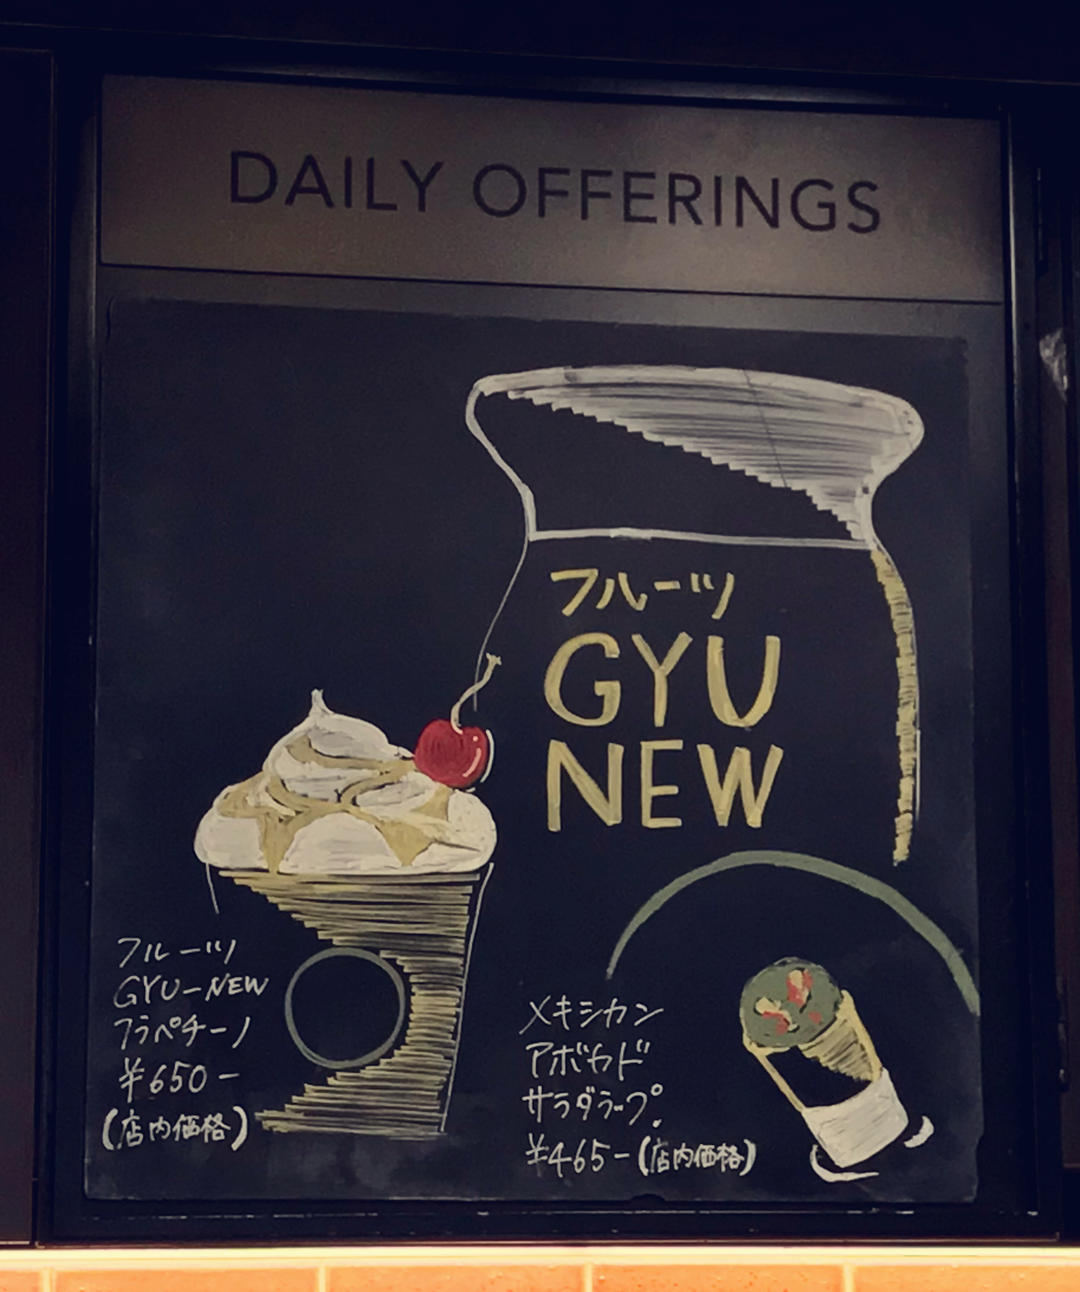 DAILY OFFERINGS
フルーツ
GYU
NEW
フルーツ
GYU-NEW
フラペチーノ
¥650-
(店内価格)
メキシカン
アボカド
サラダラップ。
¥465-(店内価格)